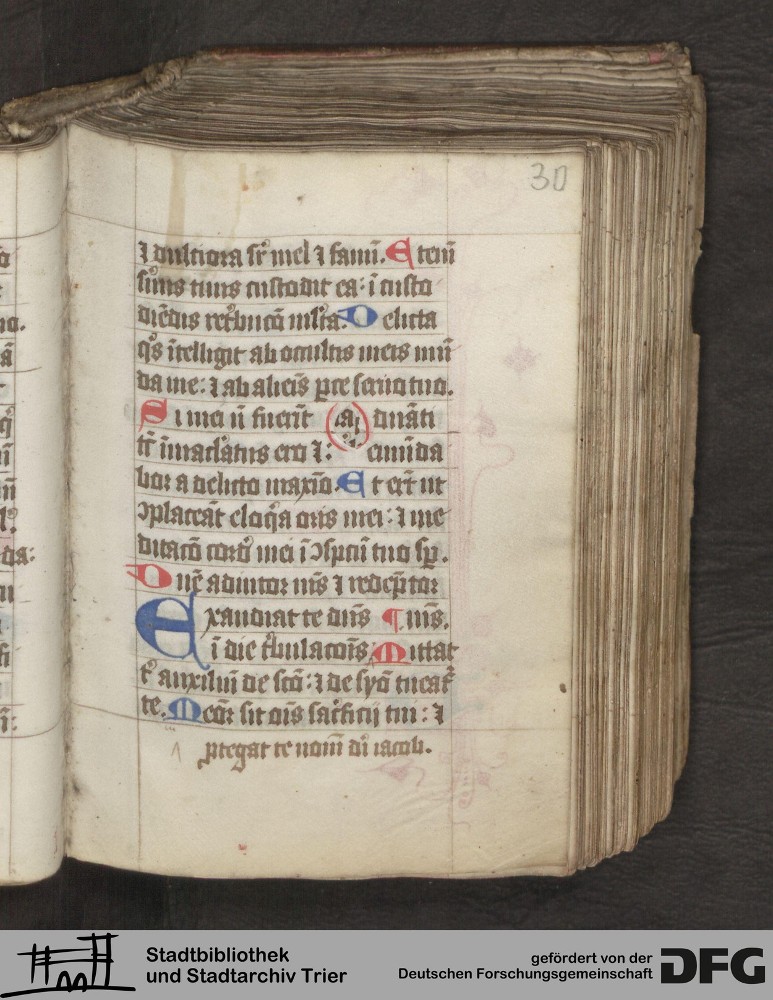 30
⁊ dulciora sr̄ mel ⁊ fauū. Eteni̅
suus tuus custodit ea: ı̅ custo
die̅dis ret͛buc̅o ml̅ta. Delicta
q͛s i̅telligit ab occultis meis mu̅
da me: ⁊ ab alieis̅ p̲ce seruo tuo.
Si mei n̅ fueri̅t (a) dn̅ati
tu̅c i̅maclatus ero ⁊: emu̅da
bor a delicto maxi̅o. Et eru̅t ut
ↄplacea̅t eloq̅a oris mei: ⁊ me
ditac̅o cord͛ mei i̅ ↄsp̅cu̅ tuo sp̅.
Dn̅e adiutor m̅s ⁊ rede̅ptor
Exaudiat te dn̅s ¶ m̅s.
i̅ die t͛bulaco̅is: Mittat
t͛ auxiliu̅ de sc̅o: ⁊ de syo̅ tueat͛
te. Meo̅r sit o̅is sac͛ficij tui: ⁊
p̲tegat te nom̅ di̅ iacob.
1
Stadtbibliothek
und Stadtarchiv Trier
gefördert von der
Deutschen Forschungsgemeinschaft
DFG